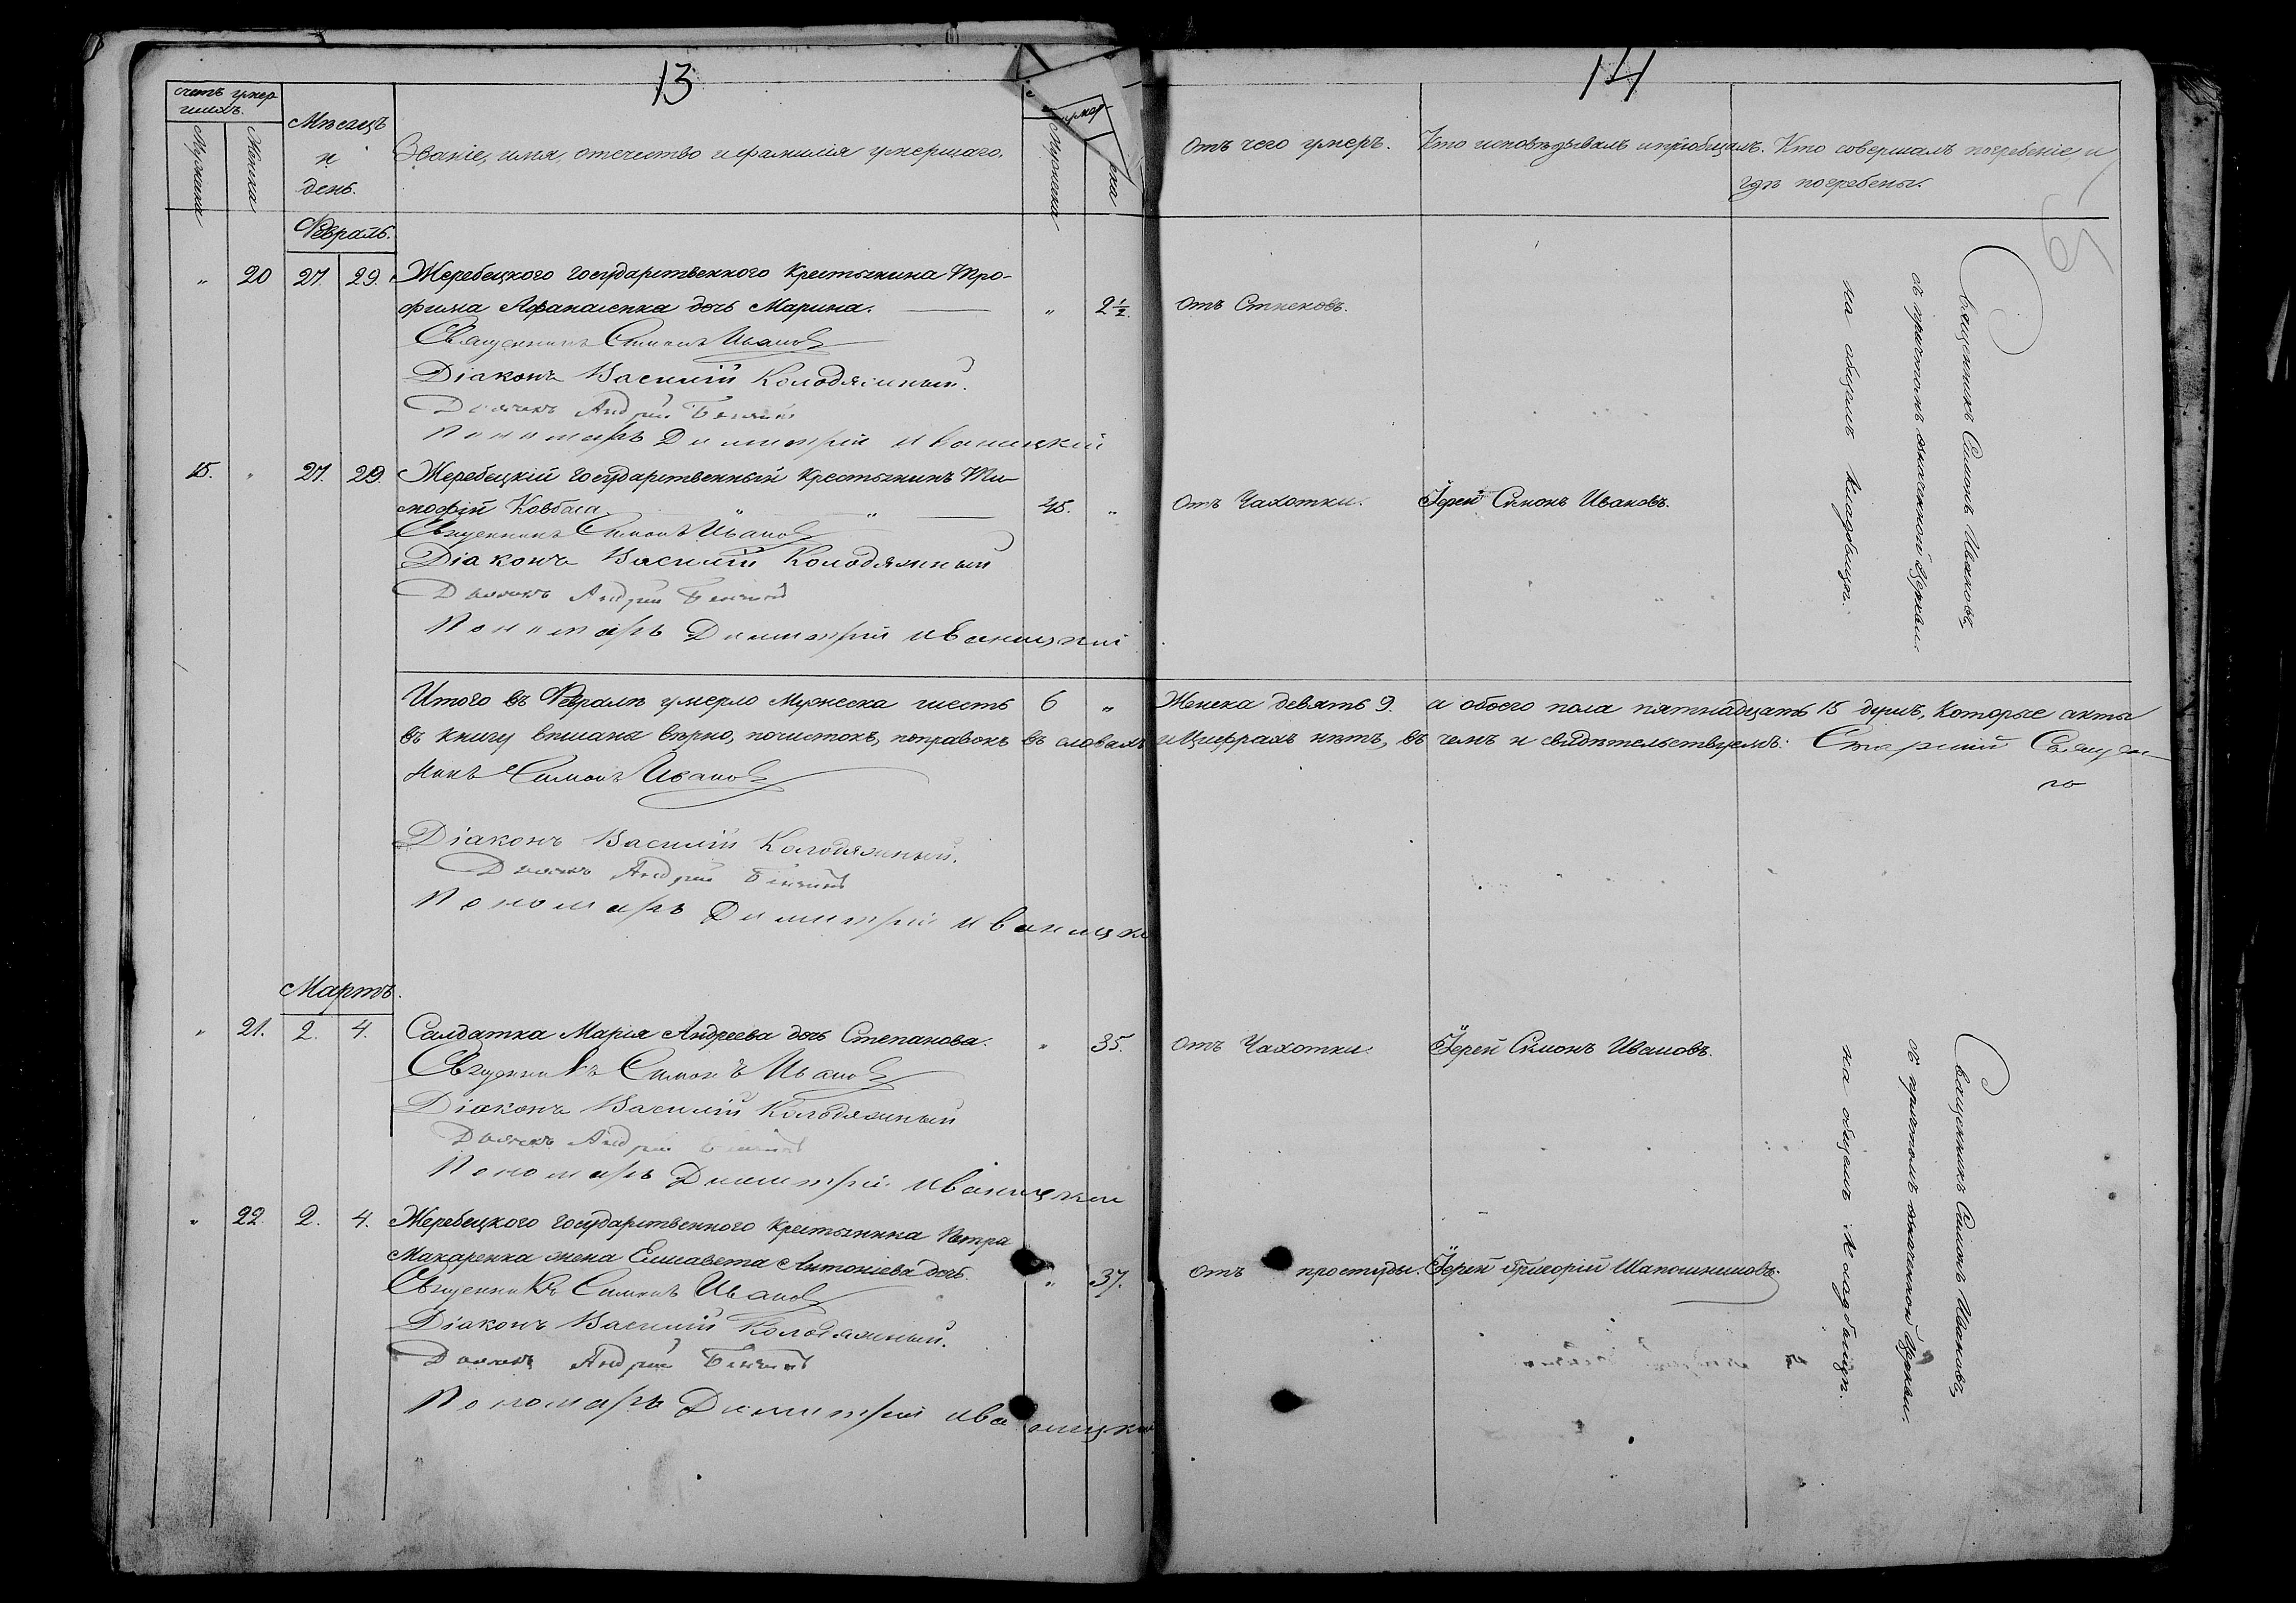 13
счетъ умер
шихъ.
Мужеска
Женска
Мѣсяцъ
и
день.
Званіе, имя, отечество и фамилія умершаго.
умер
Мужеска
ска
Февраль.
" 20 27. 29. Жеребецкого государственного крестьянина Тро-
фима Афанасенка дочь Марина. " 2½.
Священникъ Симонъ Ивановъ
Діаконъ Василій Колодяжный.
Дьячекъ Андрей
Пономаръ Димитрій Иваницкій
15. " 27. 29. Жеребецкій государственный крестьянинъ Ти-
мофій Ковбаса " 45. "
Священникъ Симонъ Ивановъ
Діаконъ Василій Колодяжный
Дьячекъ Андрей
Пономаръ Димитрій Иваницкій
Итого въ Февралѣ умерло Мужеска шесть 6 "
въ книгу вписаны вѣрно, почистокъ, поправокъ въ словахъ
никъ Симонъ Ивановъ
Діаконъ Василій Колодяжный.
Дьячекъ Андрей
Пономаръ Димитрій Иваницкі
Мартъ.
" 21. 2. 4. Салдатка Марія Андреева дочь Степанова. " 35.
Священникъ Симонъ Ивановъ
Діаконъ Василій Колодяжный
Дьячекъ Андрей
Пономаръ Димитрій Иваницкій
" 22. 2. 4. Жеребецкого государственного крестьянина Петра
Макаренка жена Елисавета Антоніева дочь. " 37.
Священникъ Симонъ Ивановъ
Діаконъ Василій Колодяжный.
Дьячекъ Андрей
Пономаръ Димитрій Иваницкій
14
Отъ чего умеръ.
Кто исповѣдывалъ и пріобщалъ.
Кто совершалъ погребеніе и
гдѣ погребены.
Отъ Стѣсковъ.
Священникъ Симонъ Ивановъ,
съ причтомъ значенной Церкви.
на общемъ кладбищѣ.
Отъ Чахотки. Іерей Симонъ Ивановъ.
Женска девять 9. а обоего пола пятнадцать 15 душъ, которые акты
и Цифрахъ нѣтъ, въ чемъ и свидѣтельствуемъ: Старшій Священ
го
Отъ Чахотки. Іерей Симонъ Ивановъ.
Священникъ Симонъ Ивановъ,
съ причтомъ значенной Церкви.
на общемъ кладбищѣ.
Отъ простуды. Іерей Григорій Шапошниковъ.